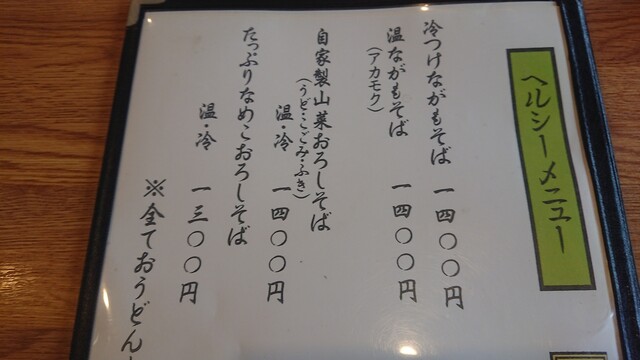 ヘルシーメニュー
冷つけながもそば 一四〇〇円
温ながもそば 一四〇〇円
(アカモク)
自家製山菜おろしそば
(うど・こごみ・ふき)
温・冷 一四〇〇円
たっぷりなめこおろしそば
温・冷 一三〇〇円
※全ておうどん